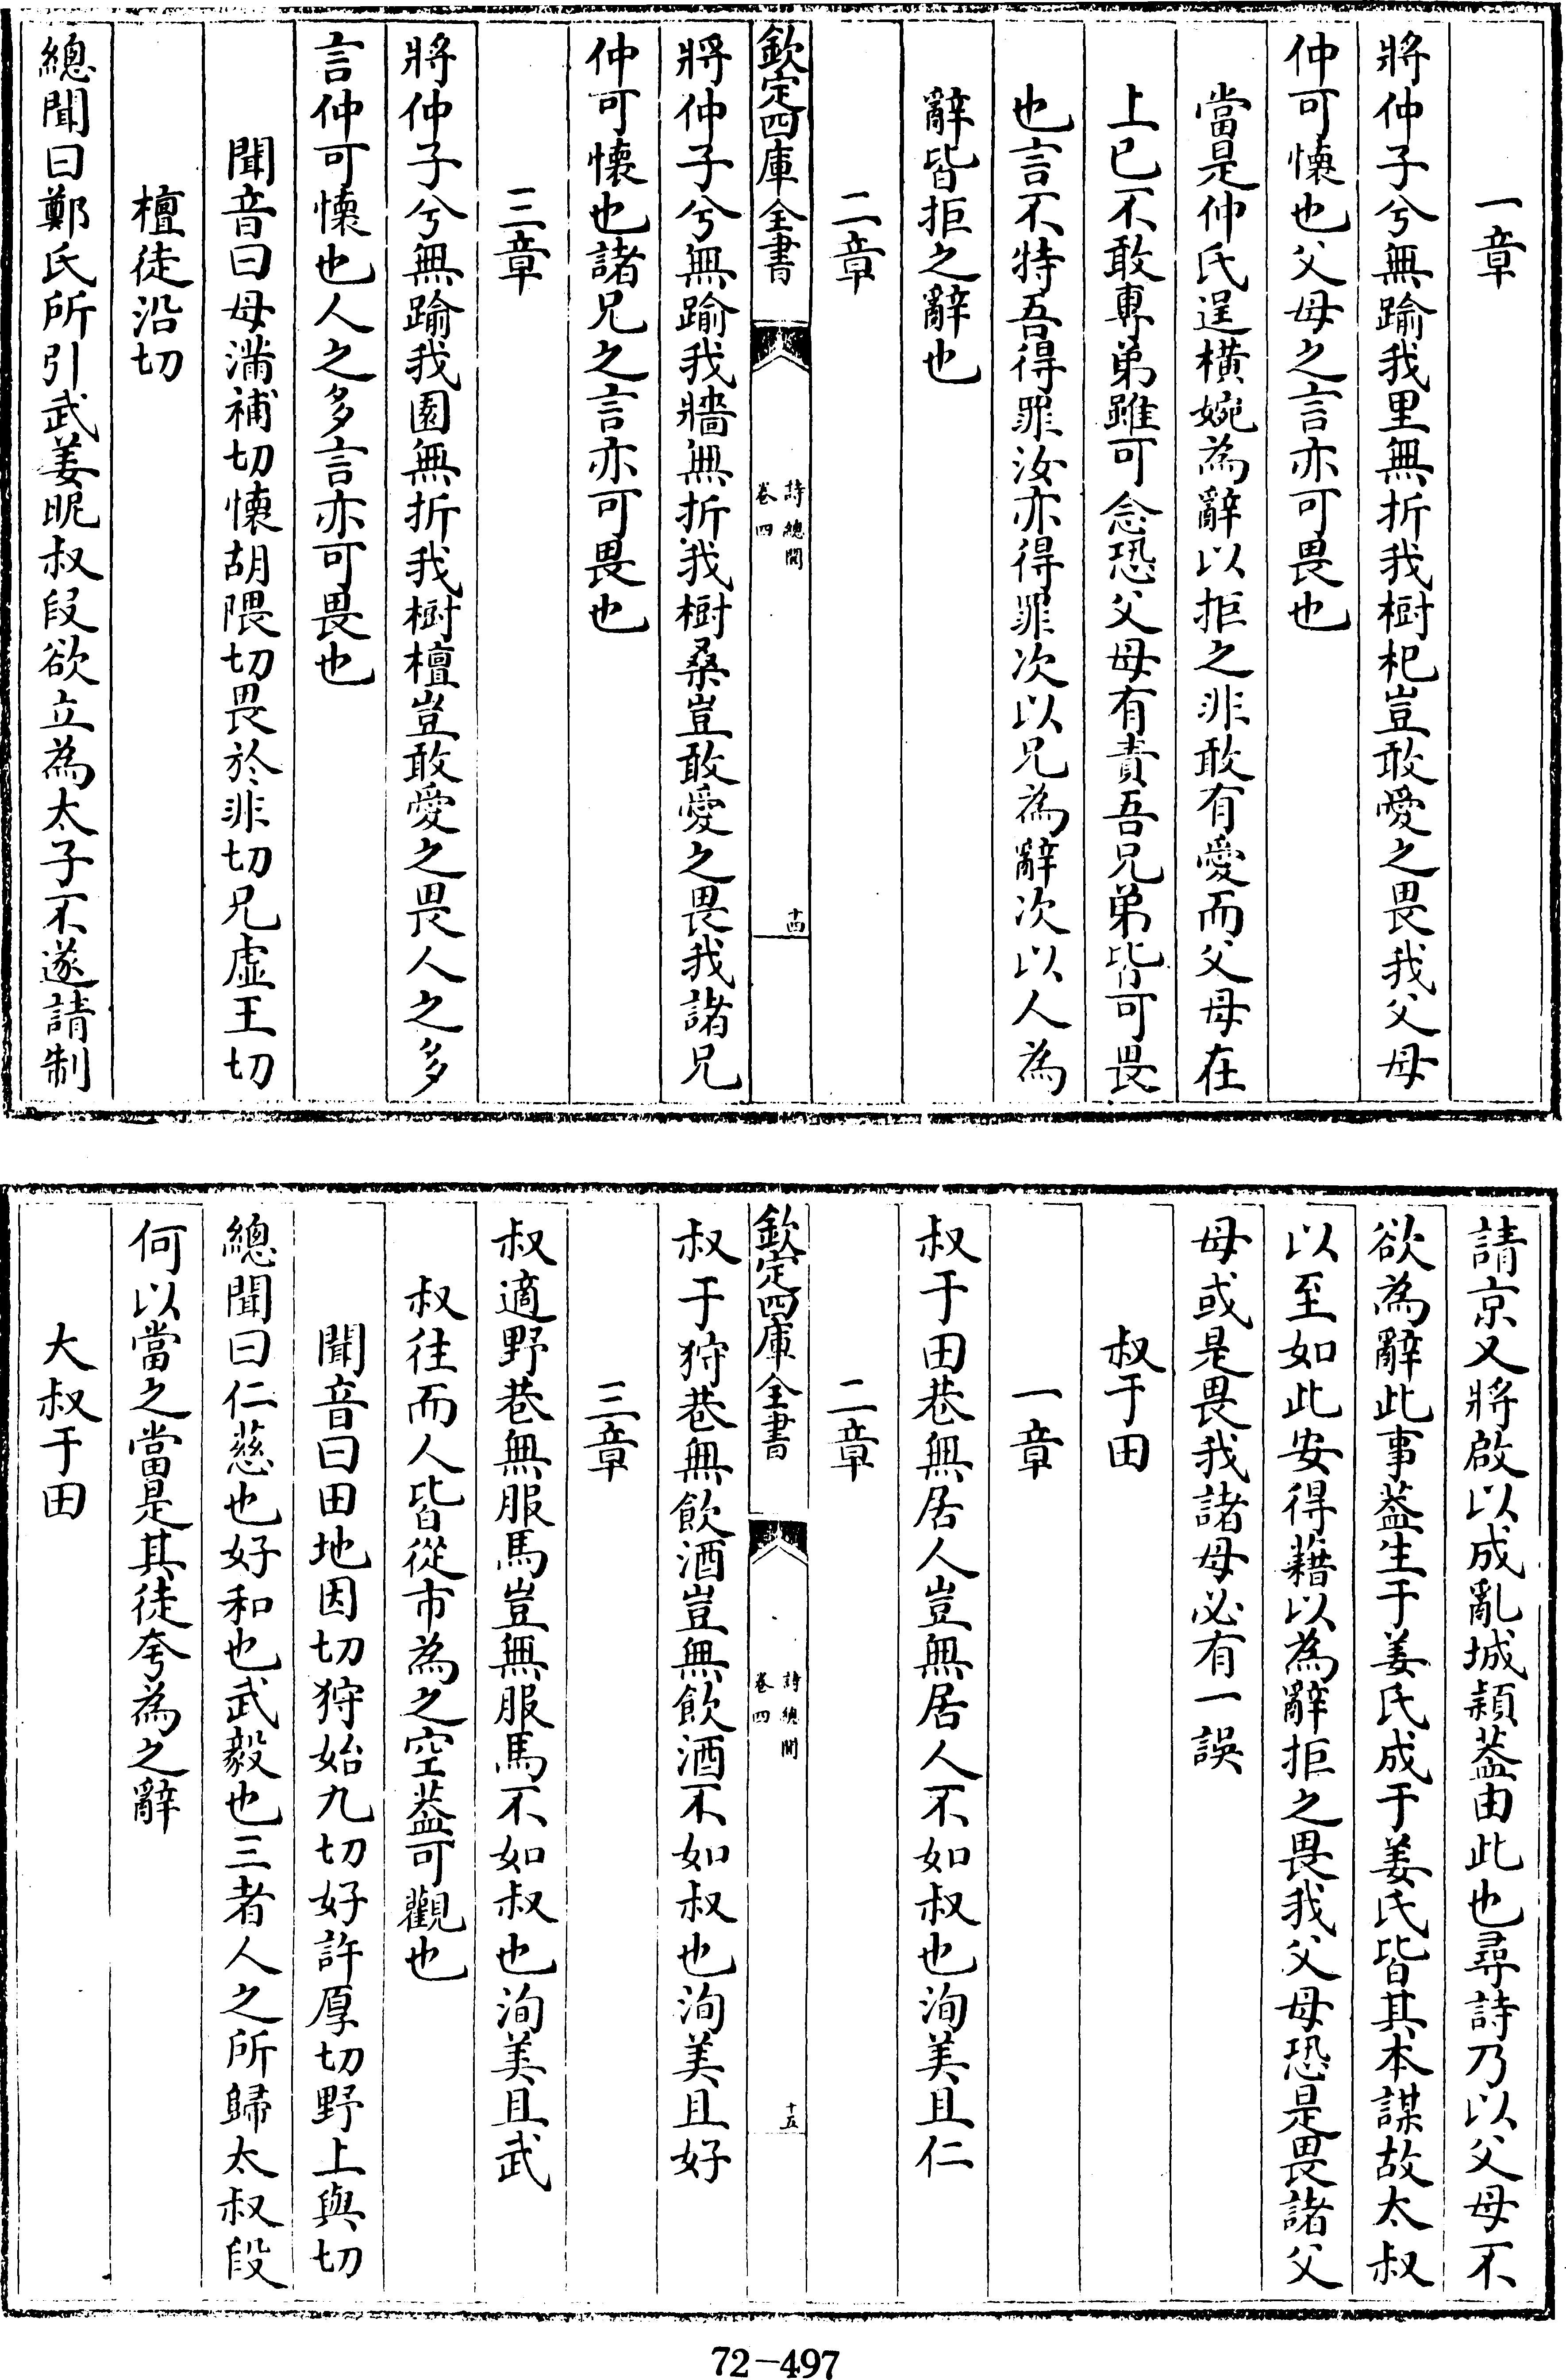 一章
將仲子兮無踰我里無折我樹杞豈敢愛之畏我父母
仲可懷也父母之言亦可畏也
當是仲氏逞橫婉為辭以拒之非敢有愛而父母在
上已不敢專弟雖可念恐父母有責吾兄弟皆可畏
也言不特吾得罪汝亦得罪次以兄為辭次以人為
辭皆拒之辭也
二章
欽定四庫全書
詩總聞
卷四
十四
將仲子兮無踰我牆無折我樹桑豈敢愛之畏我諸兄
仲可懷也諸兄之言亦可畏也
三章
將仲子兮無踰我園無折我樹檀豈敢愛之畏人之多
言仲可懷也人之多言亦可畏也
聞音曰母滿補切懷胡隈切畏於非切兄虛王切
檀徒沿切
總聞曰鄭氏所引武姜昵叔段欲立為太子不遂請制
請京又將啟以成亂城潁葢由此也尋詩乃以父母不
欲為辭此事葢生于姜氏成于姜氏皆其本謀故太叔
以至如此安得藉以為辭拒之畏我父母恐是畏諸父
母或是畏我諸母必有一誤
叔于田
一章
叔于田巷無居人豈無居人不如叔也洵美且仁
二章
欽定四庫全書
詩總聞
卷四
十五
叔于狩巷無飲酒豈無飲酒不如叔也洵美且好
三章
叔適野巷無服馬豈無服馬不如叔也洵美且武
叔往而人皆從市為之空葢可觀也
聞音曰田地因切狩始九切好許厚切野上與切
總聞曰仁慈也好和也武毅也三者人之所歸太叔段
何以當之當是其徒夸為之辭
大叔于田
72-497